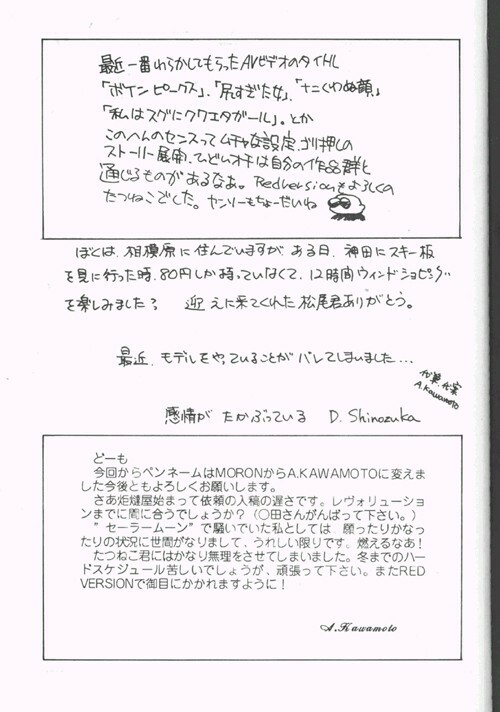 最近一番わらかしてもらったAVビデオのタイトル
「ボイン ピークス」、「尻すぎた女」、「ナニくわぬ顔」
「私はスグにクワエタガール」。とか
このへんのセンスってムチャな設定、ゴリ押しの
ストーリー展開、ひどいオチは自分の作品群と
通じるものがあるなあ。Redversionもよろしくの
たつねこでした。ヤンソーもちょーだいね
ぼくは、相模原に住んでいますが ある日、神田にスキー板
を見に行った時、80円しか持っていなくて、12時間ウィンドショピング
を楽しみました?　迎えに来てくれた松尾君ありがとう。
最近、モデルをやっていることがバレてしまいました...
代筆
A.Kawamoto
感情が たかぶっている　D. Shinozuka
どーも
今回からペンネームはMORONからA.KAWAMOTOに変えま
した今後ともよろしくお願いします。
さあ炬燵屋始まって依頼の入稿の遅さです。レヴォリューショ
ンまでに間に合うでしょうか?（○田さんがんばって下さい。）
”セーラームーン”で騒いでいた私としては 願ったりかなっ
たりの状況に世間がなりまして、うれしい限りです。燃えるなあ!
たつねこ君にはかなり無理をさせてしまいました。冬までのハー
ドスケジュール苦しいでしょうが、頑張って下さい。またRED
VERSIONで御目にかかれますように!
A.Kawamoto